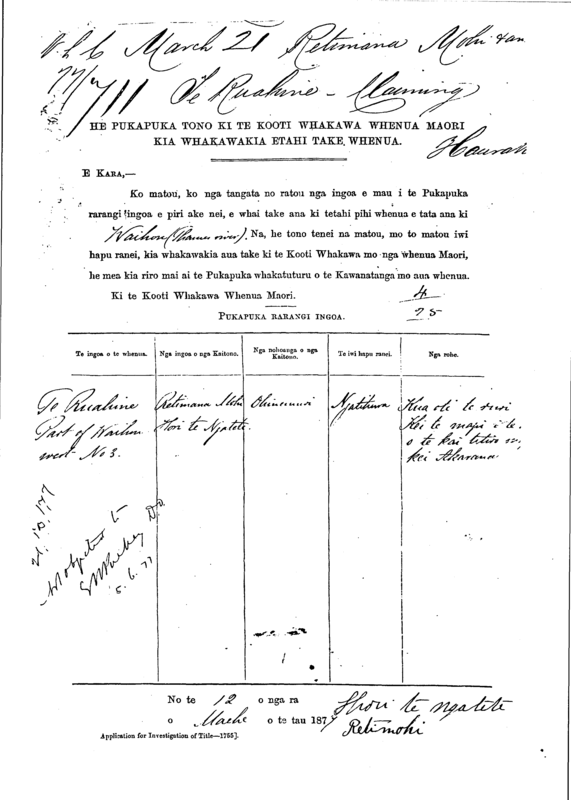 March 21 Retimana Mohi & an
77/711 Te Ruahine - Claiming
HE PUKAPUKA TONO KI TE KOOTI WHAKAWA WHENUA MAORI
KIA WHAKAWAKIA ETAHI TAKE WHENUA.
Hauraki
E KARA,—
Ko matou, ko nga tangata no ratou nga ingoa e mau i te Pukapuka
rarangi ingoa e piri ake nei, e whai take ana ki tetahi pihi whenua e tata ana ki
Waihou (Thames river). Na, he tono tenei na matou, mo to matou iwi
hapu ranei, kia whakawakia aua take ki te Kooti Whakawa mo nga whenua Maori,
he mea kia riro mai ai te Pukapuka whakatuturu o te Kawanatanga mo aua whenua.
Ki te Kooti Whakawa Whenua Maori.
4
75
PUKAPUKA RARANGI INGOA.
Te ingoa o te whenua. Nga ingoa o nga Kaitono. Nga nohoanga o nga Kaitono. Te iwi hapu ranei. Nga rohe.
Te Ruahine Retimana Mohi Ohinemuri Ngatihura Kua oti te ruri
Part of Waihou Hori te Ngatete Kei te mapi i te
west No 3. o te kai titiro
kei Akarana
objected to
5.6.77
No te 12 o nga ra
o Maehe o te tau 1877
Hori te ngatete
Retimohi
Application for Investigation of Title—1755].